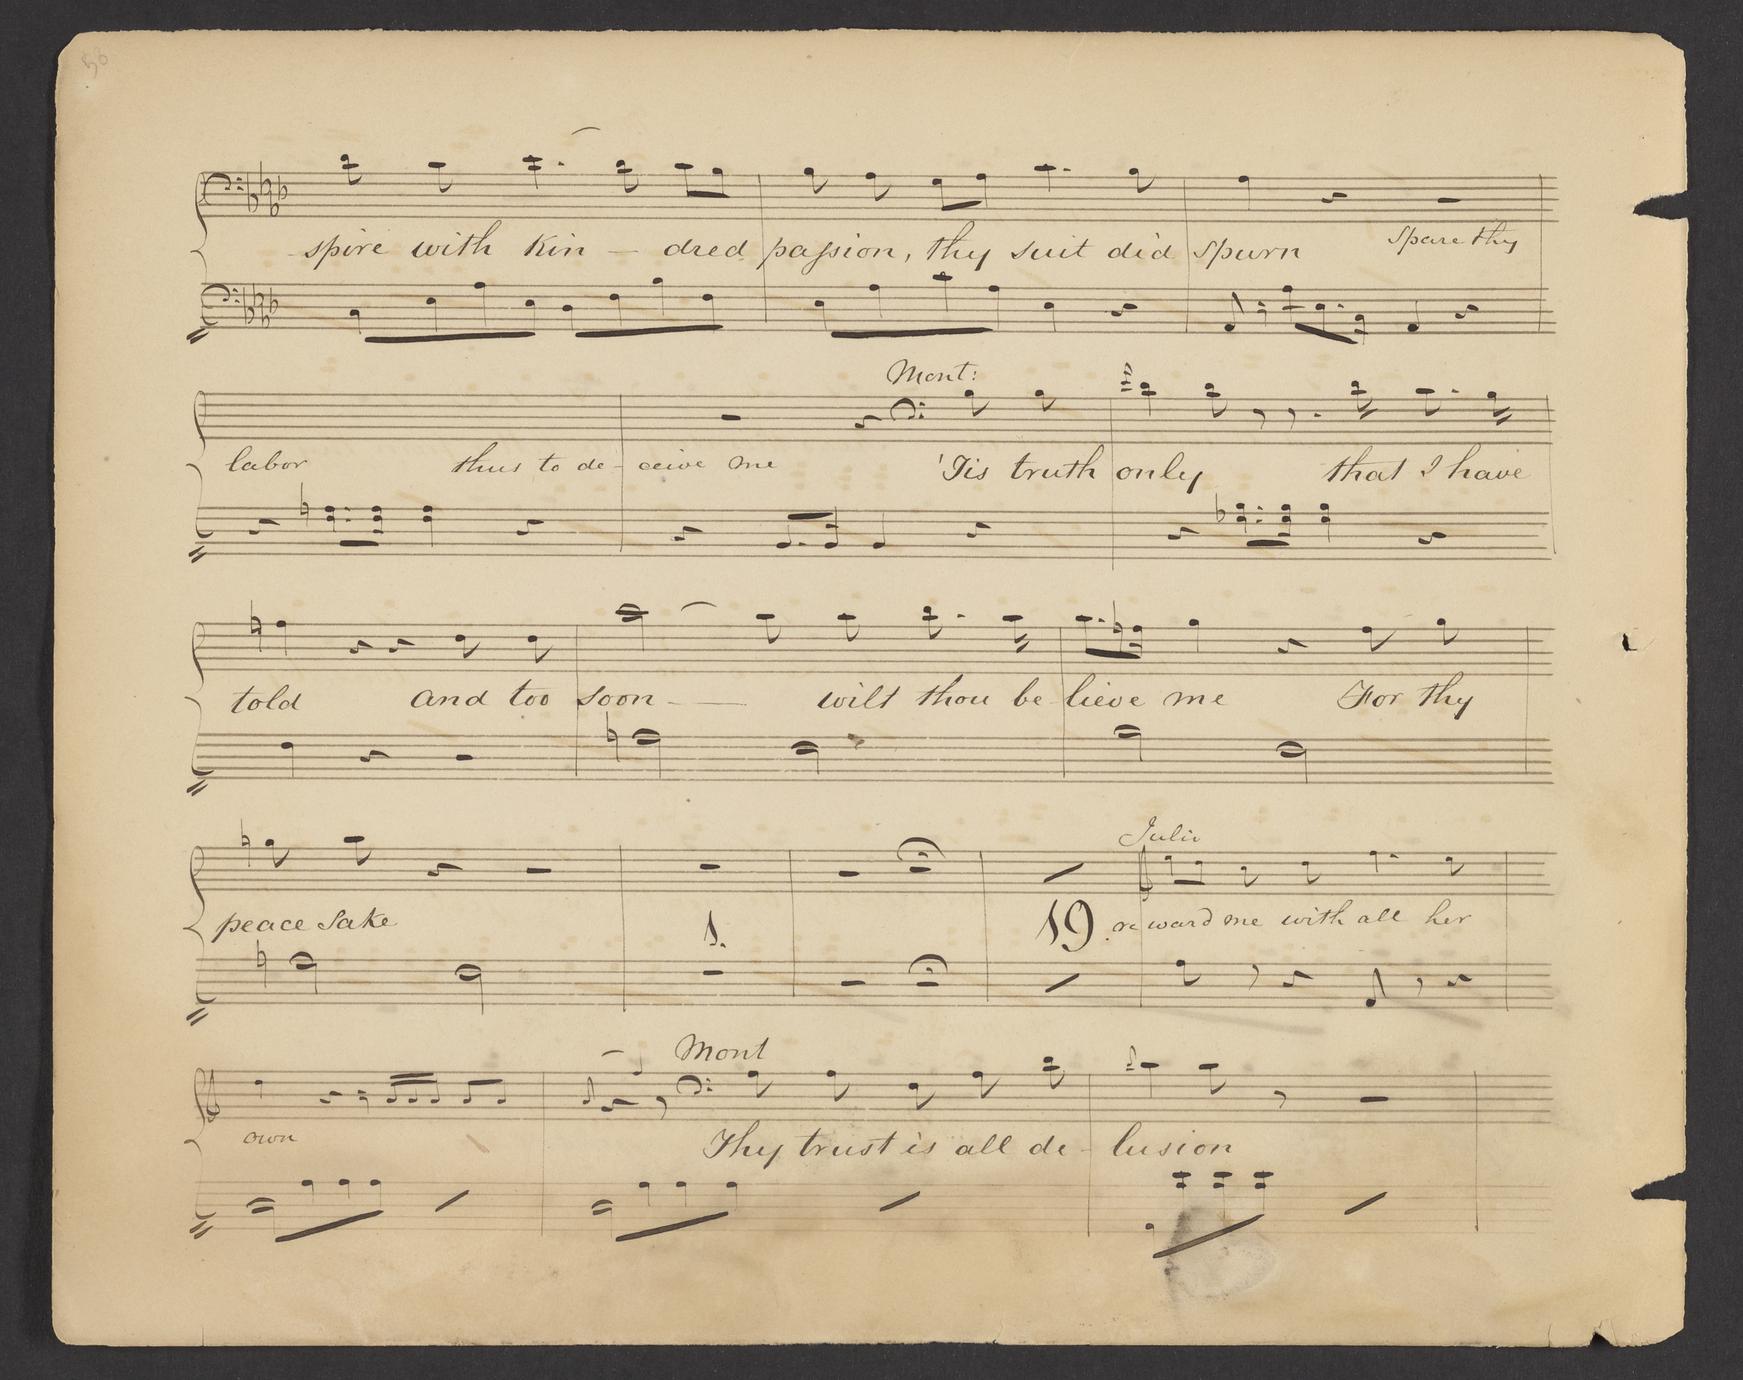 56
spire with Kin — dred passion, thy suit did spurn Spare thy
Mont:
labor thus to de- ceive me 'Tis truth only that I have
told and too soon — wilt thou be lieve me For thy
Julio
peace sake 19 reward me with all her
Mont
own Thy trust is all de - lusion